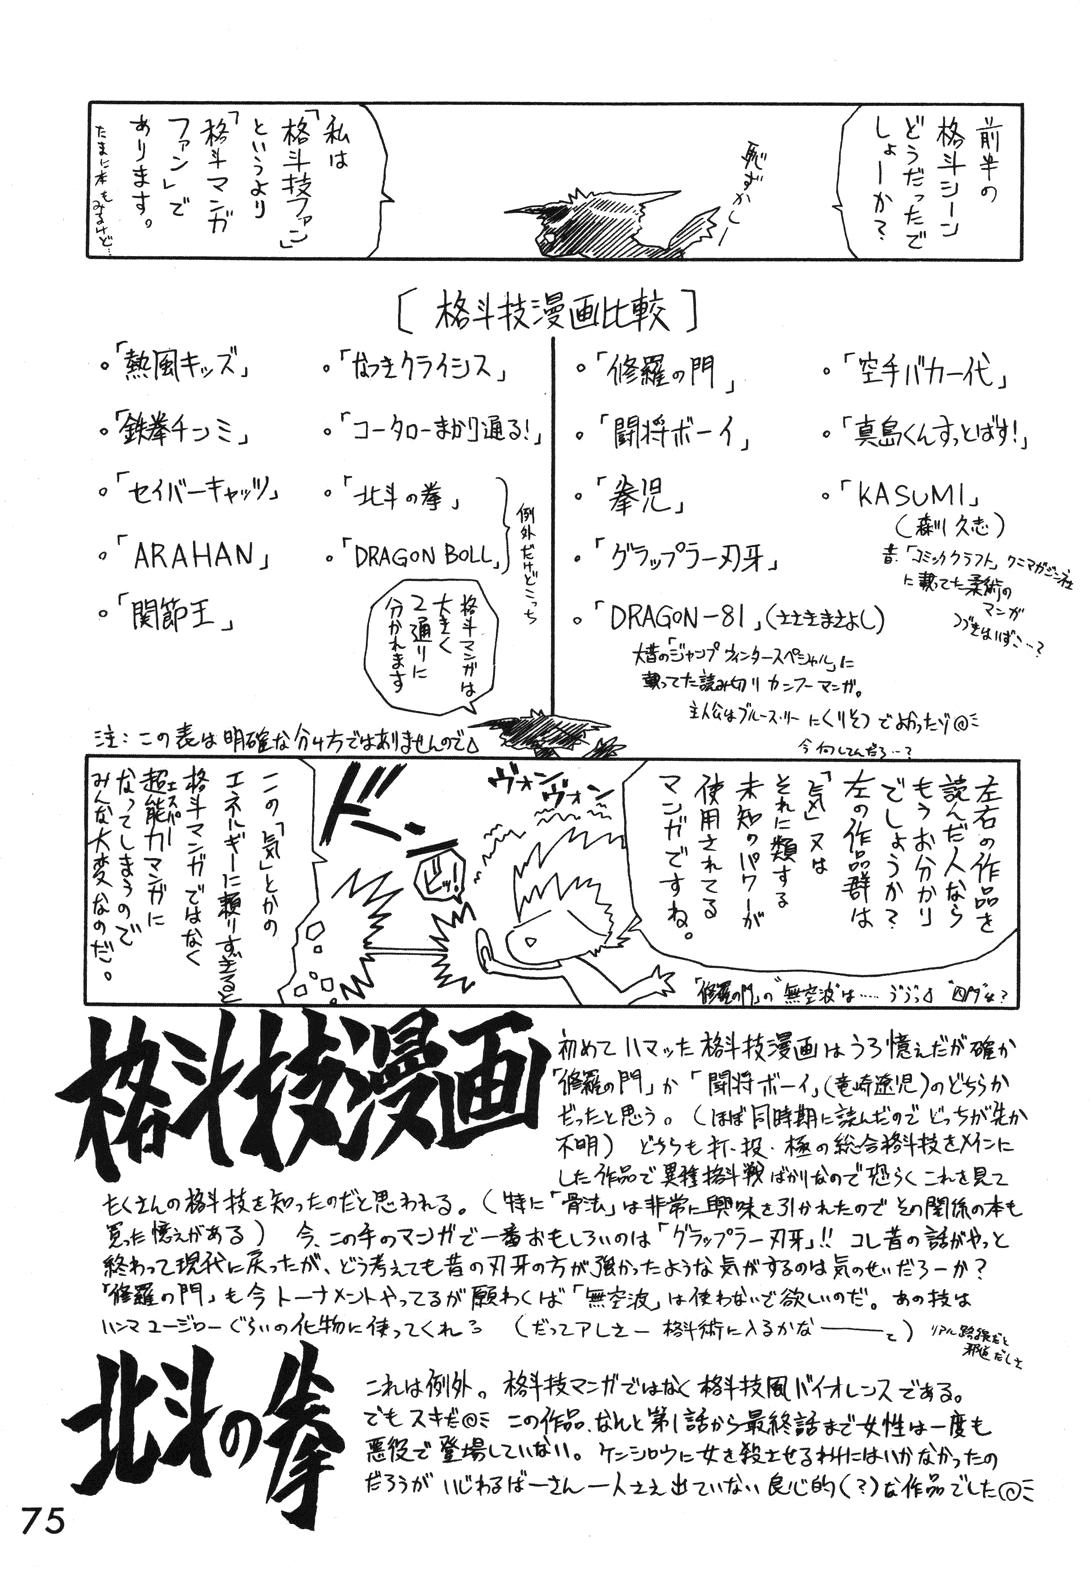 前半の
格斗シーン
どうだったで
しょーか?
恥ずかしー
私は
「格斗技ファン」
というより
「格斗マンガ
ファン」で
あります。
たまに本もみるけど…
[格斗技漫画比較]
。「熱風キッズ」
。「鉄拳チンミ」
。「セイバーキャッツ」
。「ARAHAN」
。「関節王」
。「なつきクライシス」
。「コータローまかり通る!」
。「北斗の拳」
。「DRAGON BOLL」
例外だけどこっち
。「修羅の門」
。「闘将ボーイ」
。「拳児」
。「グラップラー刃牙」
。「DRAGON-81」(ささきまさよし)
大昔の「ジャンプ ウィンタースペシャル」に
載ってた読み切りカンフーマンガ。
主人公はブルース・リーにくりそつでよかったゾ
今何してんだろ…?
。「空手バカ一代」
。「真島くんすっとばす!」
。「KASUMI」
(森川久志)
昔「コミッククラフト」クニマガジン社
に載ってた柔術の
マンガ
つづきはいずこ…?
格斗マンガは
大きく
2通りに
分かれます
注:この表は明確な分け方ではありませんので
左右の作品を
読んだ人なら
もうお分かり
でしょうか?
左の作品群は
「気」又は
それに類する
未知のパワーが
使用されてる
マンガですね。
「修羅の門」の"無空波"は……
ヴォン
ヴォン
ドン
ビッ!
この「気」とかの
エネルギーに頼りすぎると
格斗マンガではなく
超能力マンガに
エスパー
なってしまうので
みんな大変なのだ。
格斗技漫画
初めてハマッた格斗技漫画はうろ憶えだが確か
「修羅の門」か「闘将ボーイ」(竜崎遼児)のどちらか
だったと思う。(ほぼ同時期に読んだのでどっちが先か
不明) どちらも打・投・極の総合格斗技をメインに
した作品で異種格斗戦ばかりなので恐らくこれを見て
たくさんの格斗技を知ったのだと思われる。(特に「骨法」は非常に興味を引かれたのでその関係の本も
買った憶えがある) 今、この手のマンガで一番おもしろいのは「グラップラー刃牙」!! コレ昔の話がやっと
終わって現代に戻ったが、どう考えても昔の刃牙の方が強かったような気がするのは気のせいだろーか?
「修羅の門」も今トーナメントやってるが願わくば「無空波」は使わないで欲しいのだ。あの技は
ハンマユージローぐらいの化物に使ってくれろ (だってアレさー格斗術に入るかな――と) リアル路線だと
邪道だしさ
北斗の拳
これは例外。格斗技マンガではなく格斗技風バイオレンスである。
でもスキだ この作品、なんと第1話から最終話まで女性は一度も
悪役で登場していない。ケンシロウに女を殺させるわけにはいかなかったの
だろうが いじわるばーさん一人さえ出ていない良心的(?)な作品でした
75